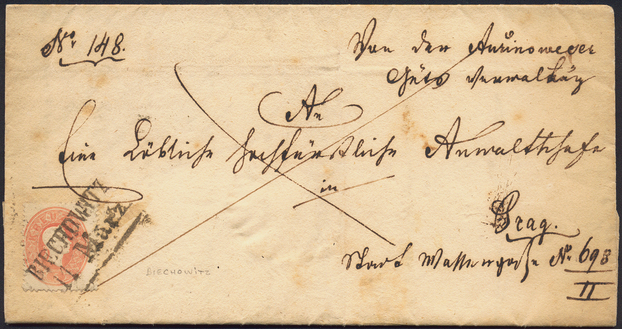 No. 148.
Von der Aurinoweser
Güts Verwaltung
An
Eine Löbliche hochfürstliche Anwaltschafft
in
Prag.
Stadt Wassergasse No. 693
II
BIECHOWITZ
11 März
BIECHOWITZ